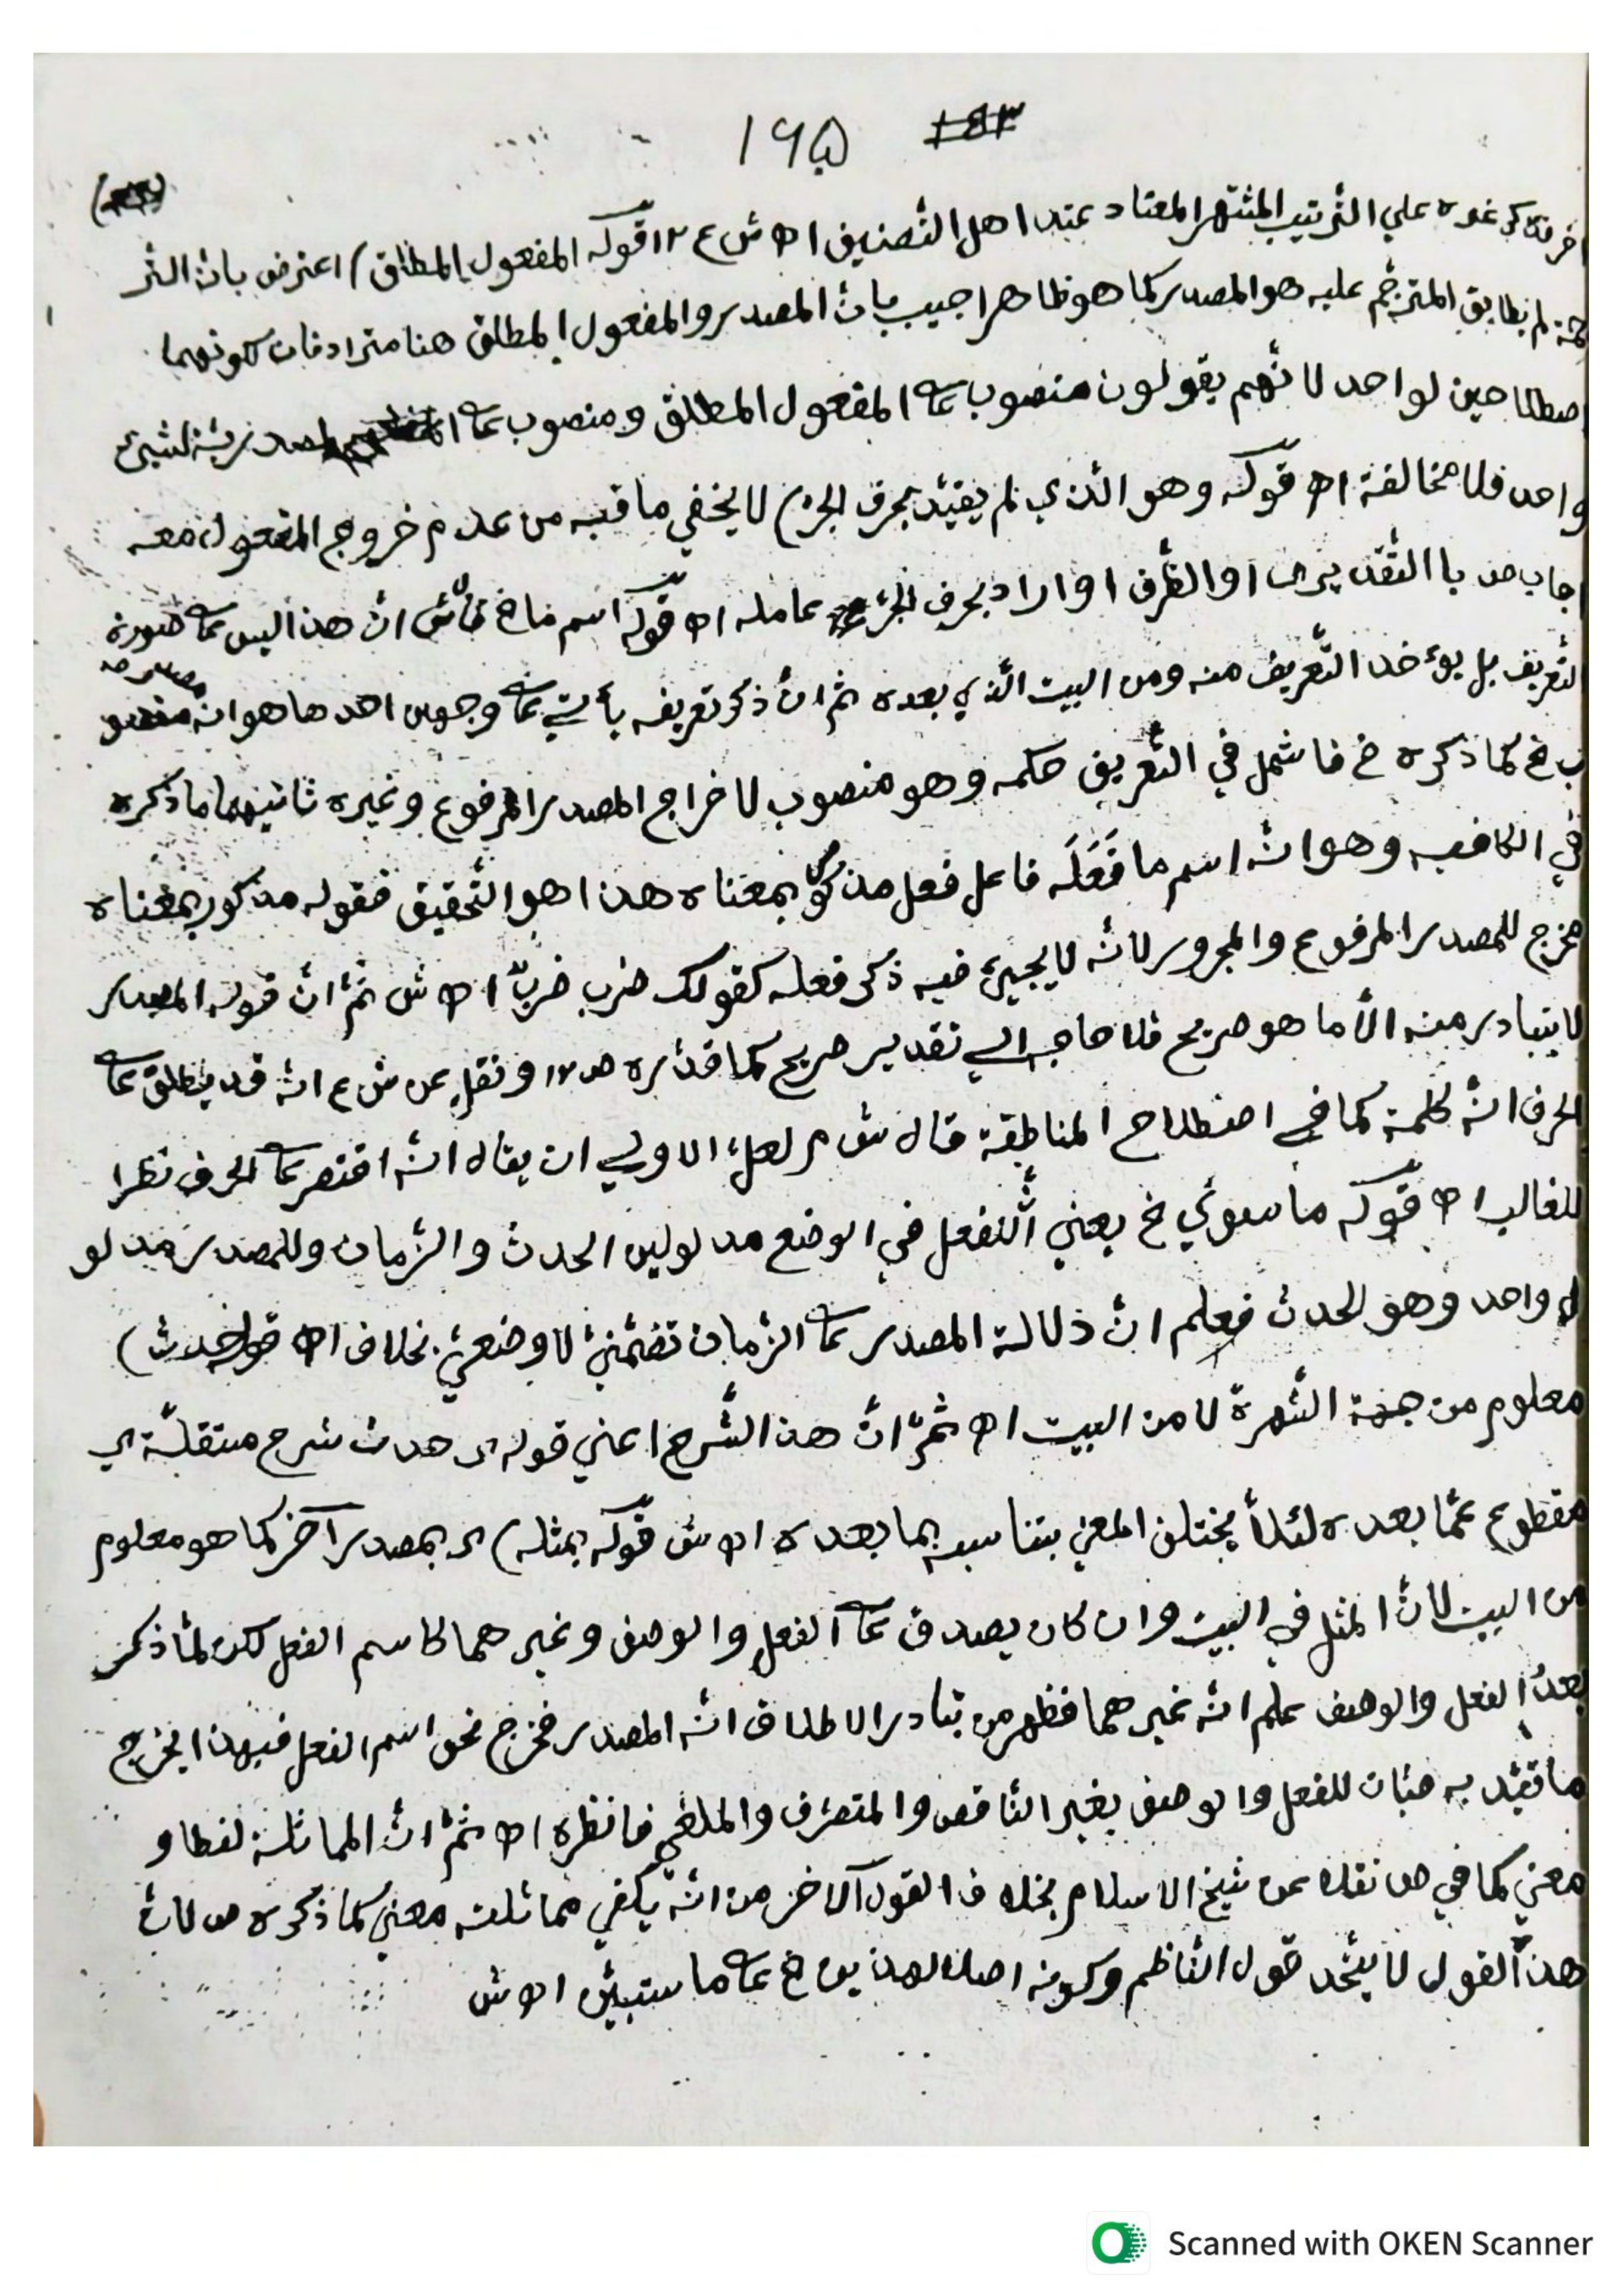 ١٩٥ ١٤٣
غيره علي الترتيب المشتهر المعتاد عند اهل التصنيف اه ش ع ١٢ قوله المفعول المطلق) اعترض بان التر
جمة لم يطابق المترجم عليه هو المصدر كما هو ظاهر اجيب بان المصدر والمفعول المطلق هنا مترادفان لكونهما
اصطلاحين لواحد لانهم يقولون منصوب ع المفعول المطلق ومنصوب ع المصدرية لشيئ
واحد فلا مخالفة اه قوله وهو الذي لم يقيد بحرف الجر) لا يخفي ما فيه من عدم خروج المفعول معه
اجاب ص با التقديري او الظرف او اراد بحرف الجر عامله اه قوله اسم ما خ ش ان هذا ليس ع صورة
التعريف بل يوءخذ التعريف منه ومن البيت الذي بعده ثم ان ذكر تعريفه يأتي ع وجهين احدهما هو انه
ب خ كما ذكره خ فاشمل في التعريف حكمه وهو منصوب لاخراج المصدر المرفوع وغيره ثانيهما ما ذكره
في الكافيه وهو انه اسم ما فَعَلَه فاعل فعل مذكور بمعناه هذا هو التحقيق فقوله مذكور بمعناه
مخرج للمصدر المرفوع والمجرور لانه لا يجيئ فيه ذكر فعله كقولك ضرب ضربٌ اه ش ثم ان قوله المصدر
لا يتبادر منه الّا ما هو صريح فلا حاجه الي تقدير صريح كما قدّره ص ١٢ ونقل عن ش ع انه قد يطلق ع
الحرف انه كلمة كما في اصطلاح المناطقة قال ش م لعل الاولي ان يقال انه اقتصر ع الحرف نظرا
للغالب اه قوله ما سوي خ يعني أنّ للفعل في الوضع مدلولين الحدث والزمان وللمصدر مدلو
ل واحد وهو الحدث فعلم انّ دلالة المصدر ع الزمان تضمني لا وضعي بخلاف اه قوله حدث)
معلوم من جهة الشهرة لا من البيت اه ثمّ انّ هذا الشرح اعني قوله اى حدث شرح مستقلّة اي
مقطوع عمّا بعده لئلاّ يختلف المعني بتناسبه بما بعده اه ش قوله بمثله) اى بمصدر آخر كما هو معلوم
من البيت لانّ المثل في البيت وان كان يصدق ع الفعل والوصف وغيرهما كاسم الفعل لكن لمّا ذكر
بعدُ الفعل والوصف علم انه غيرهما فظهر من تبادر الاطلاق انه المصدر فخرج نحو اسم الفعل فبهذا يخرج
ما قيّد به صبان للفعل والوصف بغير الناقص والمتصرف والملغي فانظره اه ثمّ انّ المماثلة لفظا و
معني كما في ص نقلا عن شيخ الاسلام بخلاف القول الآخر من انه يكفي مماثلته معني كما ذكره ص لانّ
هذا القول لا يتّحد قول الناظم وكونه اصلا لهذين خ ع ما ستبيّن اه ش
Scanned with OKEN Scanner